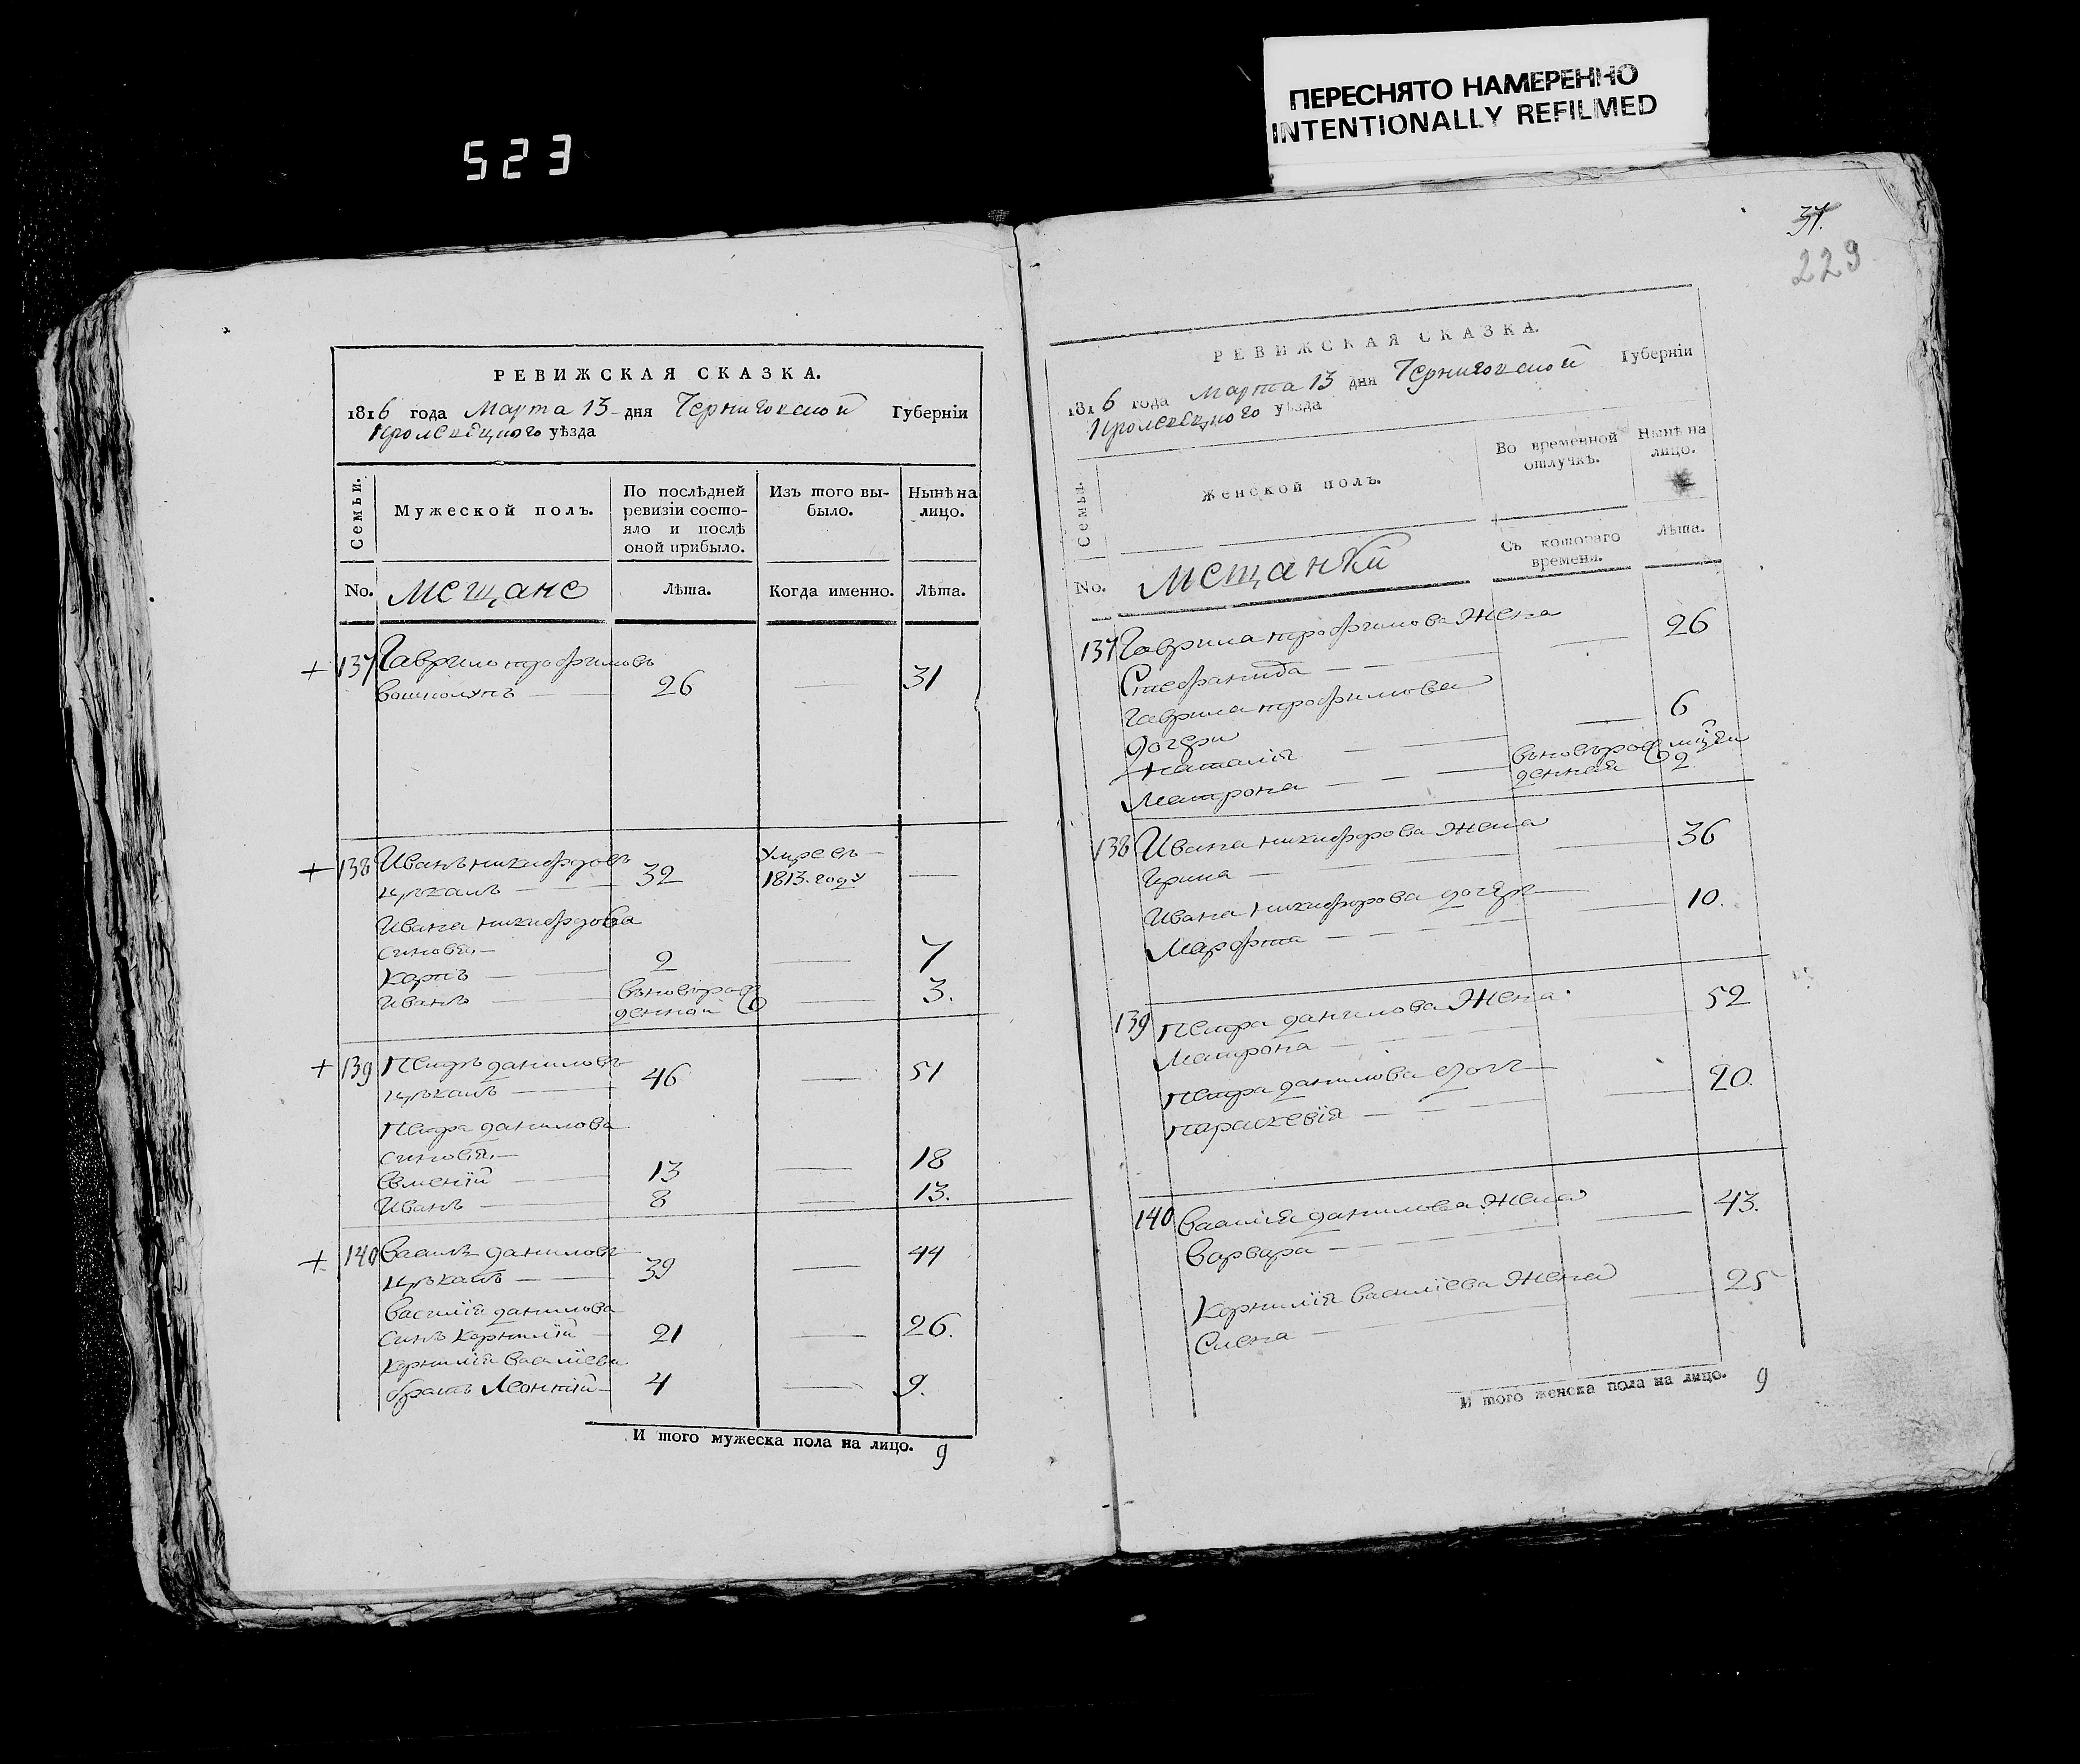 523
ПЕРЕСНЯТО НАМЕРЕННО
INTENTIONALLY REFILMED
РЕВИЖСКАЯ СКАЗКА.
1816 года Марта 13 дня Черниговской Губерніи
Кролевецкого уѣзда
Семьи.
Мужеской полъ.
По послѣдней
ревизіи состо-
яло и послѣ
оной прибыло.
Изъ того вы-
было.
Нынѣ на
лицо.
No. Мещане Лѣта. Когда именно. Лѣта.
137 Гаврило трофимовъ
26 — 31
138 Иванъ никифоровъ Умре въ
32 1813. году —
Ивана никифорова
синовя
Карпъ — 2 — 7
Иванъ — вновьрож 3.
денной
139 Петръ даниловъ
46 — 51
Петра данилова
синовя
Евмений — 13 — 18
Иванъ — 8 — 13.
140 Василь даниловъ 44
39 —
Василія данилова
синъ Корнилій — 21 — 26.
Корнилія Василіева
братъ Леонтій — 4 — 9.
И того мужеска пола на лицо. 9
37.
229
РЕВИЖСКАЯ СКАЗКА.
1816 года Марта 13 дня Черниговской Губерніи
Кролевецкого уѣзда
Семьи.
Женской полъ.
Во временной
отлучкѣ.
Нынѣ на
лицо.
Съ котораго
времени.
Лѣта.
No. Мещанки
137 Гаврила трофимова Жена
Стефанида — — — 26
Гаврила трофимова
дочери
Наталія — — — 6
Матрона — — вновърож
денная 2
138 Ивана никифорова Жена
Ирина — — 36
Ивана никифорова дочерь
Марфта — — 10.
139 Петра данилова Жена
Матрона — — 52
Петра данилова дочь
Параскевія — — 20.
140 Василія данилова Жена
Варвара — — 43.
Корнилія Василіева Жена
Елена — — 25
И того женска пола на лицо. 9